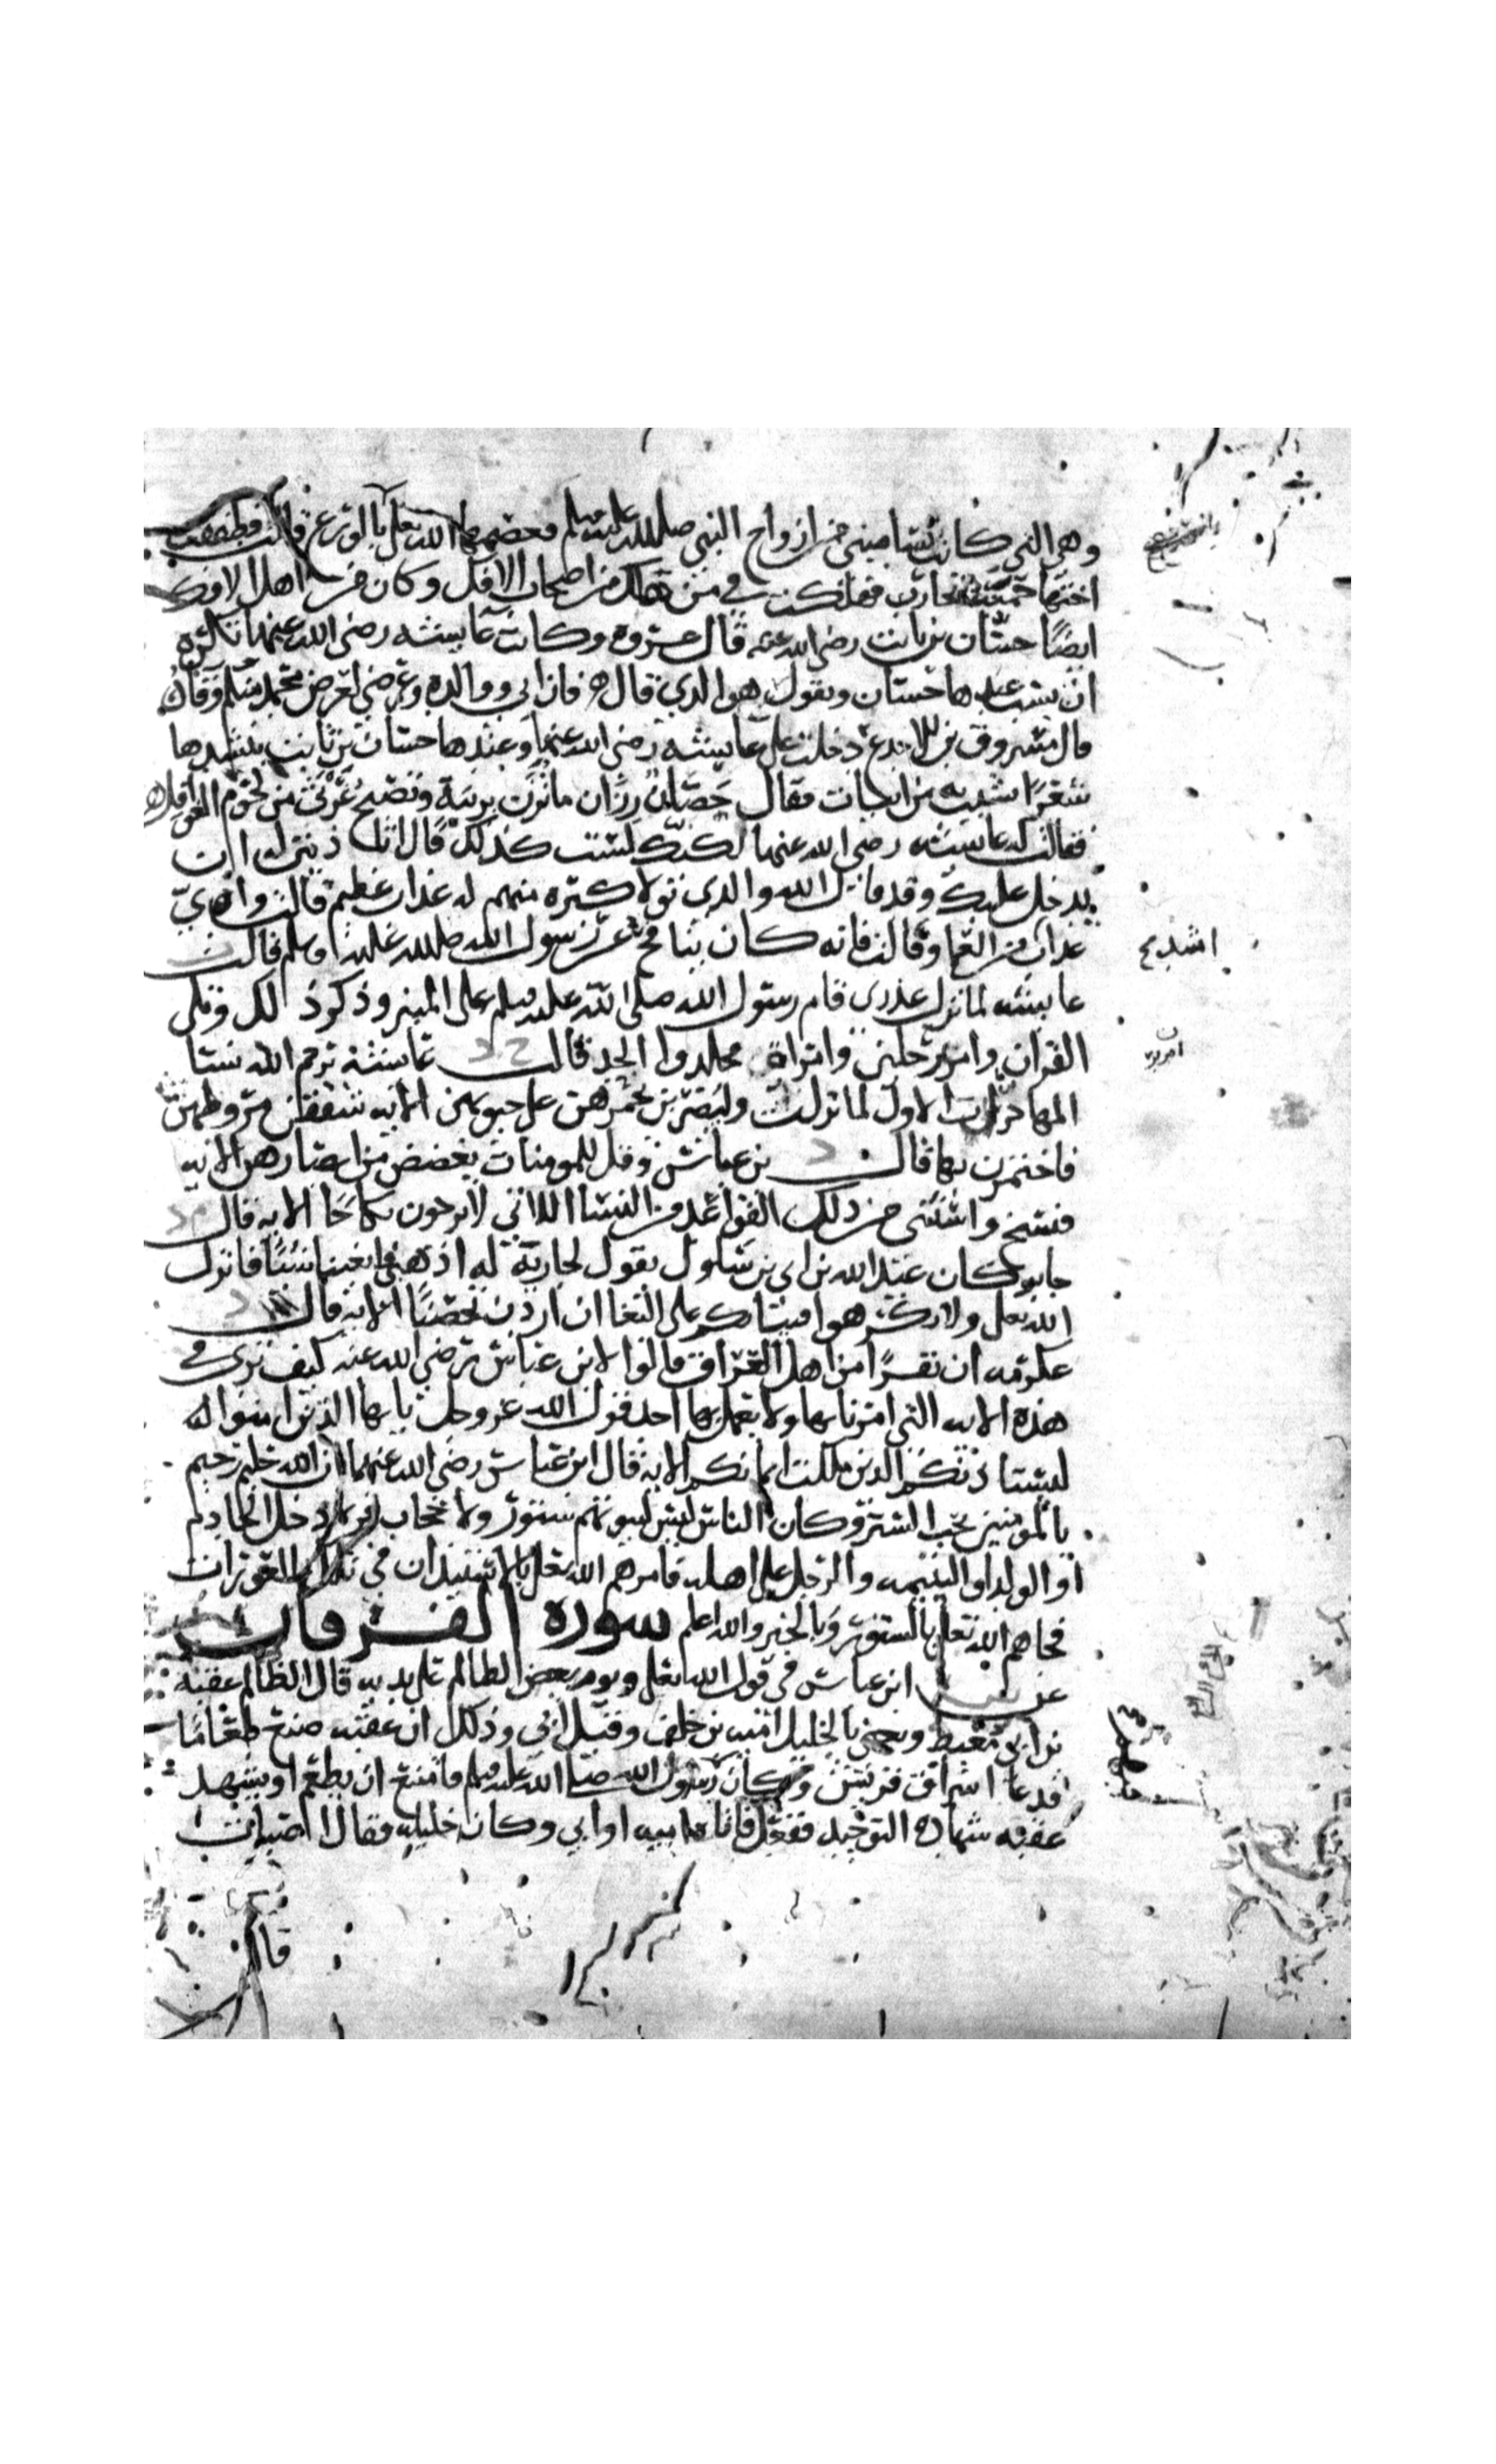 وهي التي كانت تساميني من ازواج النبي صلى الله عليه وسلم فعصمها الله تعالى بالورع قالت وطفقت
اختها حمنة تحارب فهلكت في من هلك من اصحاب الافك وكان من اهل الافك
ايضا حسان بن ثابت رضي الله عنه قال عروة وكانت عايشه رضي الله عنها تكره
ان يسب عندها حسان وتقول هو الذي قال فان ابي ووالده وعرضي لعرض محمد منكم وقاء
قال مسروق بن الاجدع دخلت على عايشه رضي الله عنها وعندها حسان بن ثابت ينشدها
شعرا يشبب به من ابيات فقال حصان رزان ما تزن بريبة وتصبح غرثى من لحوم الغوافل
فقالت له عايشه رضي الله عنها لكنك لست كذلك قال اتاذنين له ان
يدخل عليك وقد قال الله والذي تولى كبره منهم له عذاب عظيم قالت واي
عذاب من العما وقالت فانه كان ينافح عن رسول الله صلى الله عليه وسلم قالت
عايشه لما نزل عذري قام رسول الله صلى الله عليه وسلم على المنبر وذكر ذلك وتلى
القران وامر برجلين وامراة فجلدوا الحد قالت عايشة يرحم الله نسا
المهاجرات الاول لما نزلت وليضربن بخمرهن على جيوبهن الايه شققن مروطهن
فاختمرن بها قال بن عباس وقل للمومنات يغضضن من ابصارهن الايه
فنسخ واستثنى من ذلك القواعد من النسا اللاتي لا يرجون نكاحا الايه قال
جابر كان عبد الله بن ابي بن سلول يقول لجارية له اذهبي فابغينا شيئا فانزل
الله تعالى ولا تكرهوا فتياتكم على البغا ان اردن تحصنا الايه قال
عكرمه ان نفرا من اهل العراق قالوا لابن عباس رضي الله عنه كيف ترى في
هذه الايه التي امرنا بها ولا يعمل بها احد قول الله عز وجل يا ايها الذين امنوا
ليستاذنكم الذين ملكت ايمانكم الايه قال ابن عباس رضي الله عنهما ان الله حليم رحيم
بالمومنين يحب الستر وكان الناس ليس لبيوتهم ستور ولا حجاب فربما دخل الخادم
او الولد او اليتيمه والرجل على اهله فامرهم الله تعالى بالاستيذان في تلك العورات
فجاهم الله تعالى بالستور وبالخير والله اعلم سورة الفرقان
عن ابن عباس في قول الله تعالى ويوم يعض الظالم على يديه قال الظالم عقبة
بن ابي معيط ويعني بالخليل امية بن خلف وقيل ابي وذلك ان عقبه صنع طعاما
فدعا اشراف قريش وكان رسول الله صلى الله عليه وسلم فامتنع ان يطعم او يشهد
عقبه شهادة التوحيد ففعل فاتاه اميه او ابي وكان خليله فقال اصبات
قال